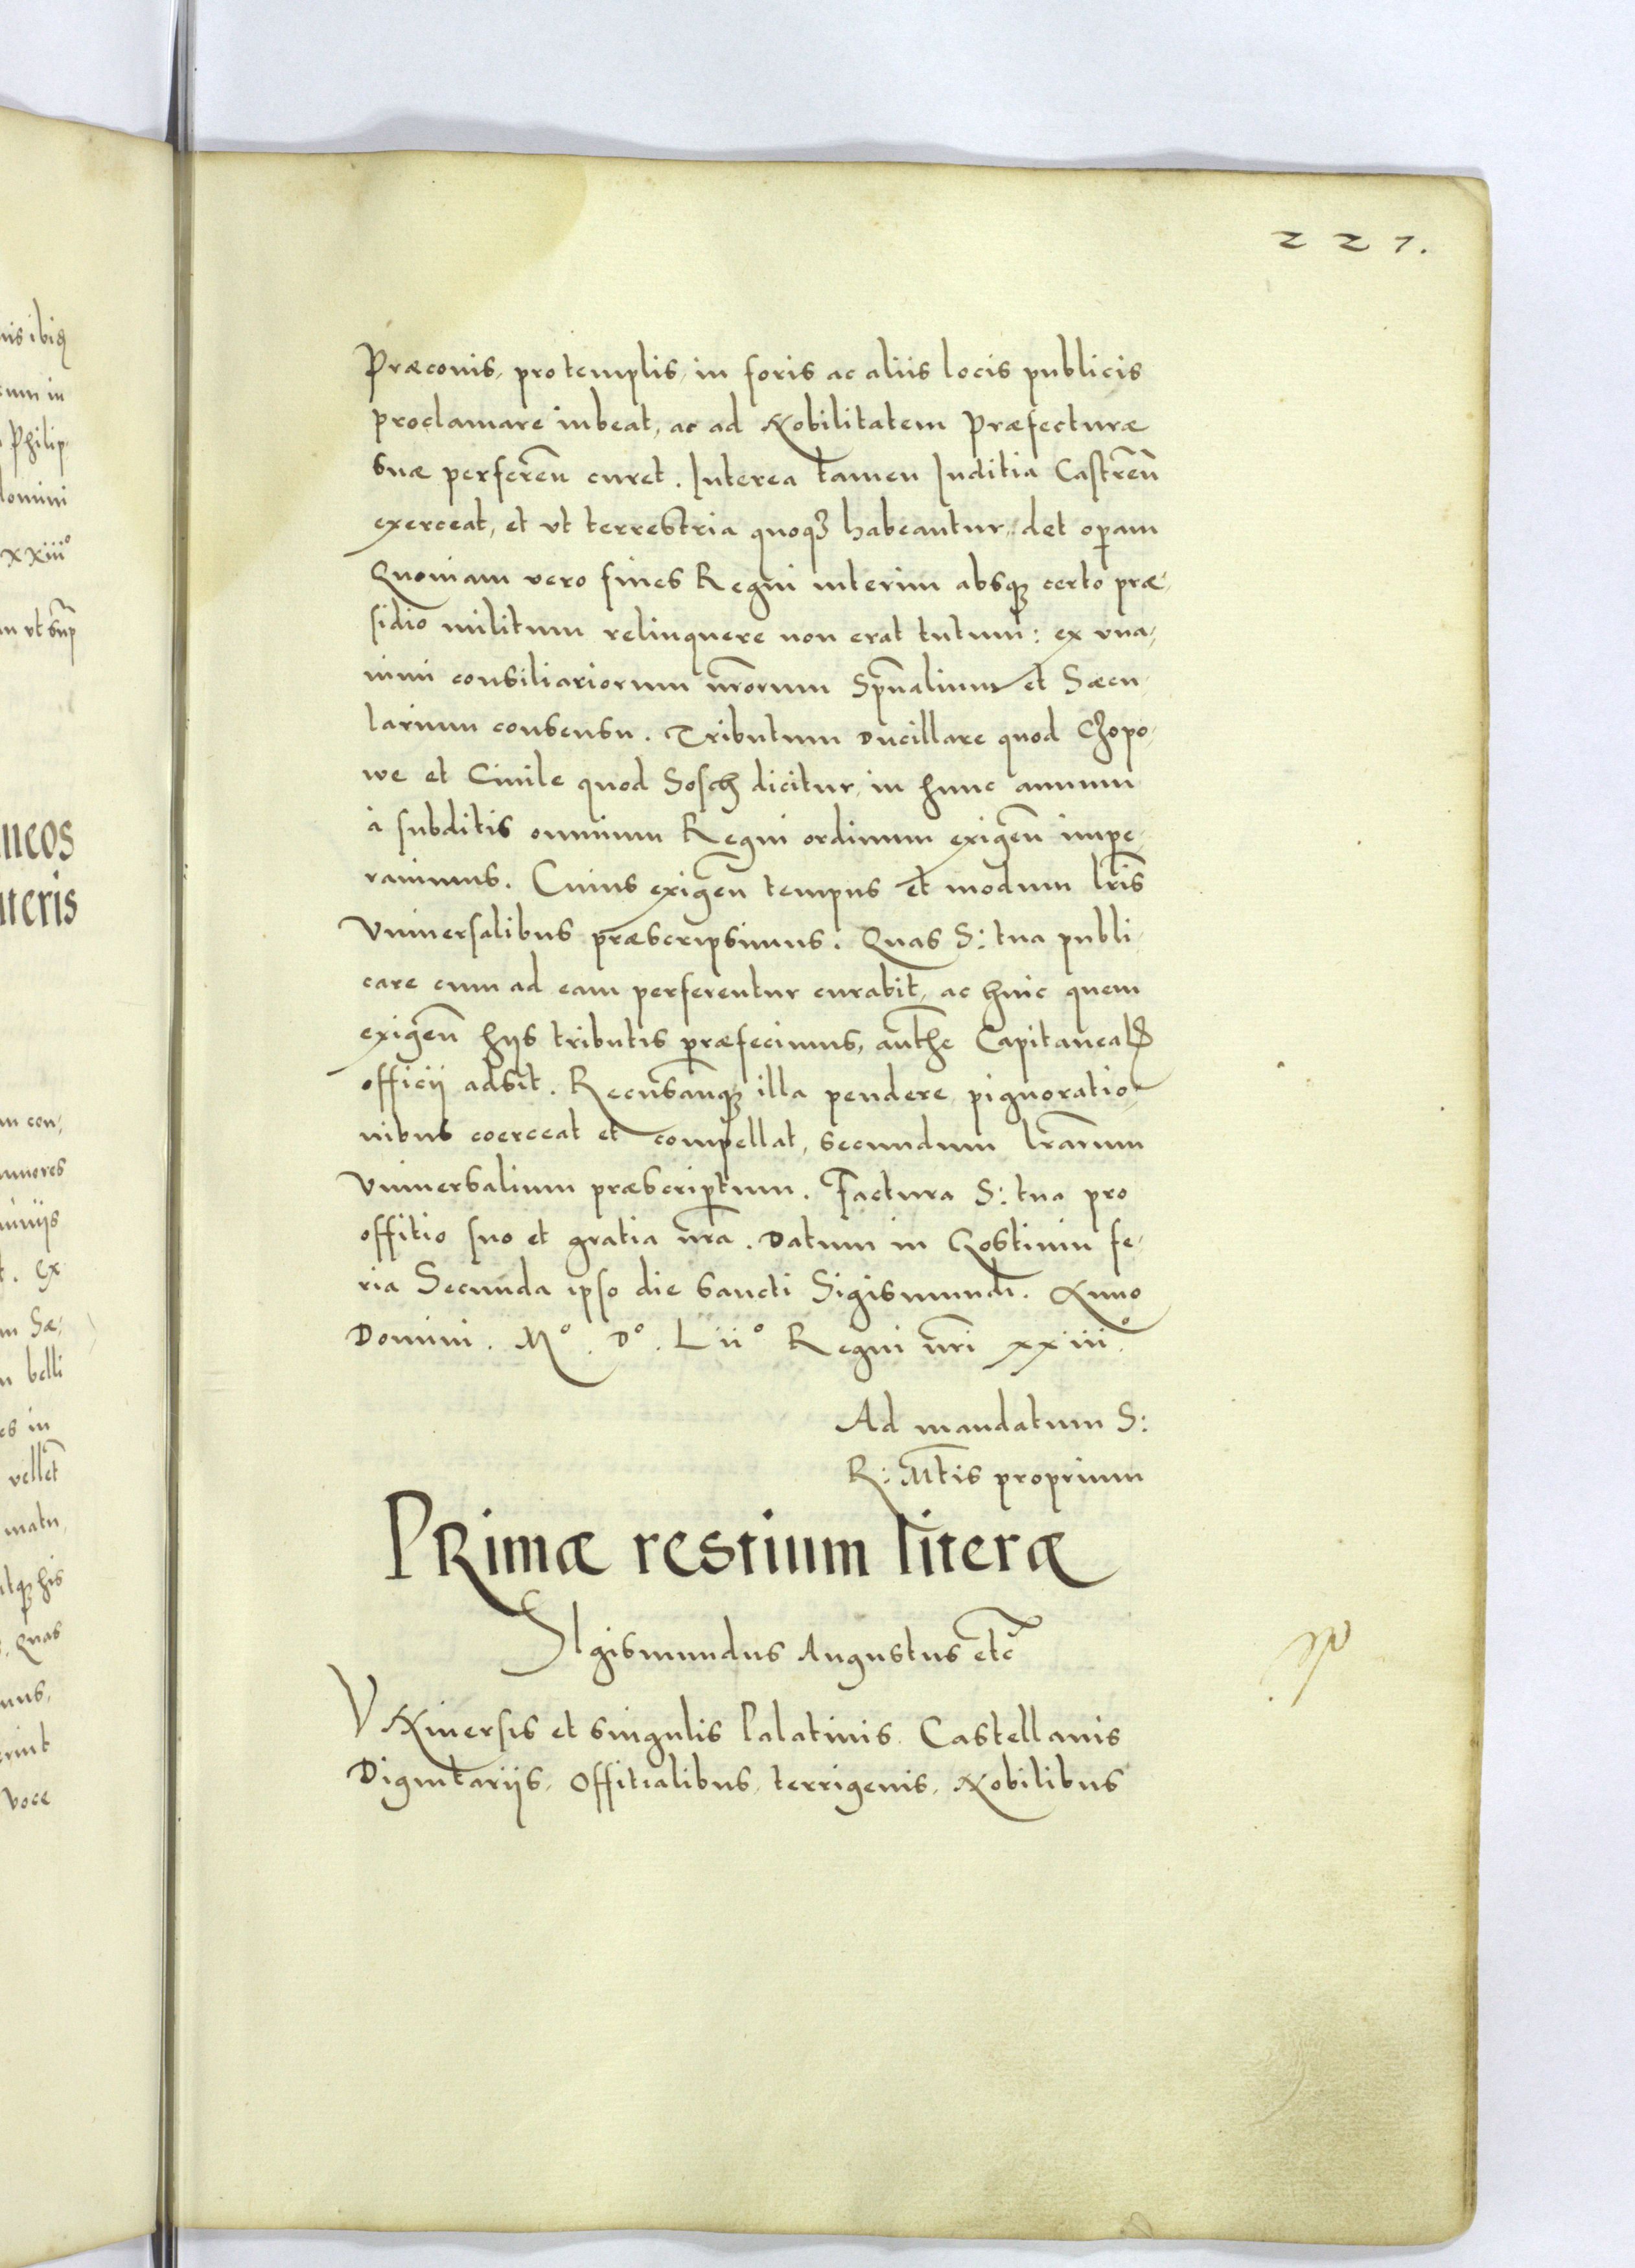 nis ibiq
um in
Philip
domini
xxiii°
ut sup
neos
iteris
m con,
mores
iuiis
t. Ex
m Sæ,
n belli
es in
vellēt
matu,
tqꝫ his
. Quas
mus,
erint
voce
221.
Præconis, pro templis, in foris ac aliis locis publicis
proclamare iubeat, ac ad Nobilitatem Præfecturæ
suæ perferēn curet. Interea tamen Iuditia Castrēn
exerceat, et vt terrestria quoqꝫ habeantur, det operam
Quoniam vero fines Regni interim absqꝫ certo præ,
sidio militum relinquere non erat tutum: ex vna,
nimi consiliariorum nr̄orum Spūalium et Sæcu,
larium consensu. Tributum Ducillare quod Czopo,
we et Ciuile quod Sosch dicitur, in hunc annum
à subditis omnium Regni ordinum exigēn impe,
rauimus. Cuius exigēn tempus et modum lr̄is
Vniuersalibus præscripsimus. Quas S: tua publi,
care cum ad eam perferentur curabit, ac huic quem
exigēn hijs tributis præfecimus, authe Capitanealꝭ
officij adsit. Recusanqꝫ illa pendere, pignoratio,
nibus coerceat et compellat, secundum lr̄arum
Vniuersalium præscriptum. Factura S: tua pro
offitio suo et gratia nr̄a. Datum in Gostinin fe,
ria Secunda ipso die sancti Sigismundi. Anno
Domini. M°. D°. Lii° Regni nr̄i xxiii°.
Ad mandatum S:
R: Mt̄is proprium
PRimæ restium literæ
SIgismundus Augustus etc̄
VNiuersis et singulis Palatinis, Castellanis
Dignitarijs, Offitialibus, terrigenis, Nobilibus